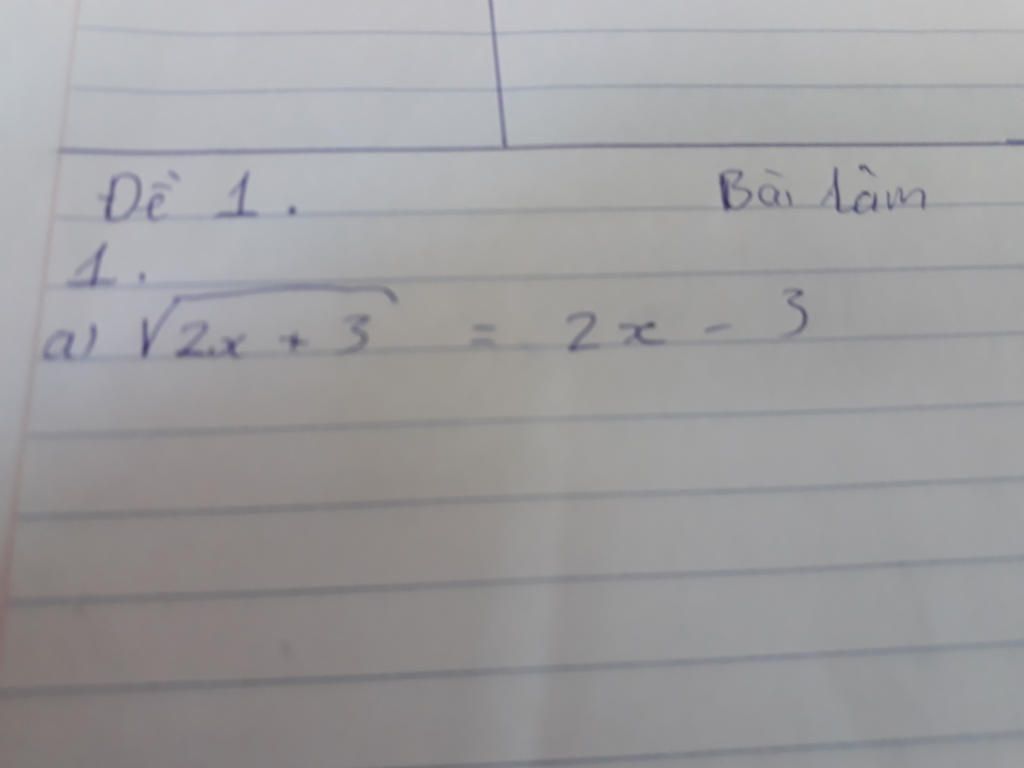 Đề 1. Bài làm
1.
a) √2x + 3 = 2x - 3